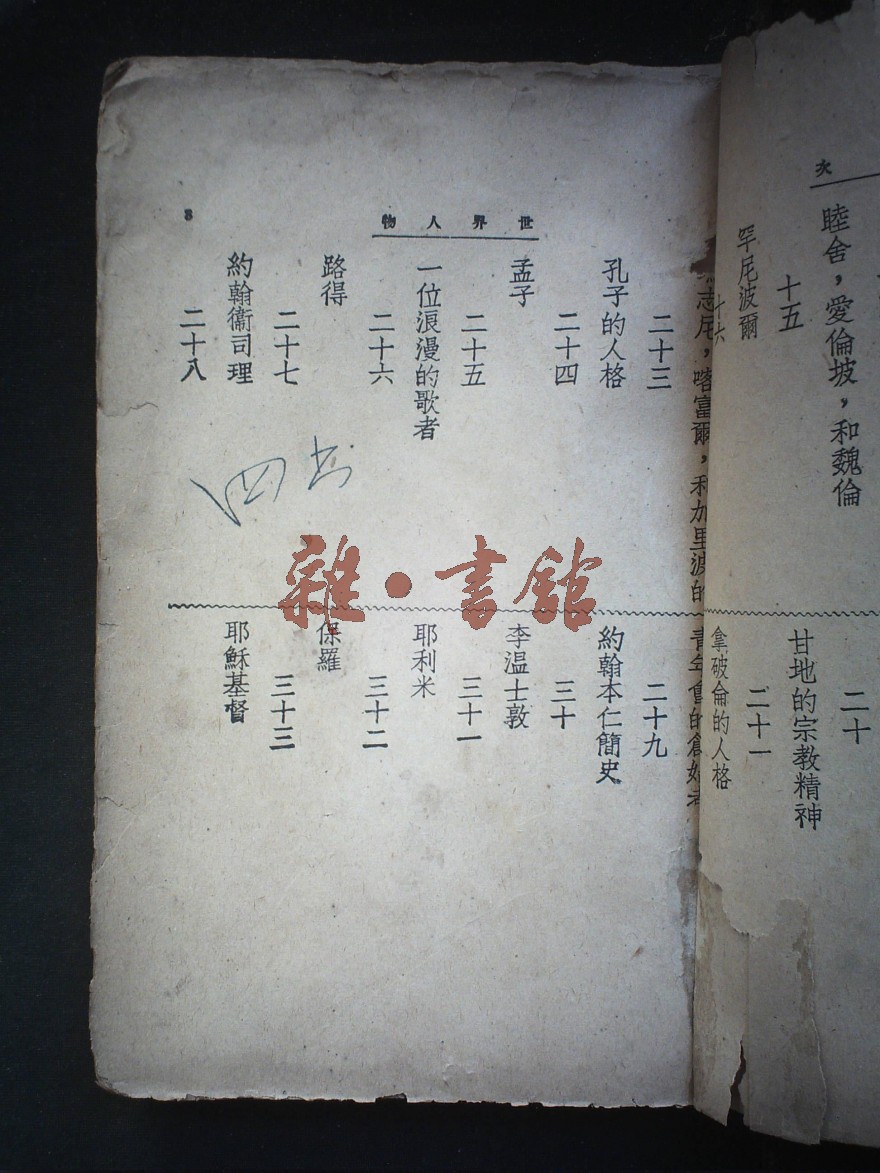 次
睦舍，愛倫坡，和魏倫
十五
罕尼波爾
十六
二十
甘地的宗教精神
二十一
拿破侖的人格
世界人物
3
志尼，喀富爾，和加里波的
二十三
孔子的人格
二十四
孟子
二十五
一位浪漫的歌者
二十六
路得
二十七
約翰衞司理
二十八
青年會的創始者
二十九
約翰本仁簡史
三十
李温士敦
三十一
耶利米
三十二
保羅
三十三
耶穌基督
雜·書館